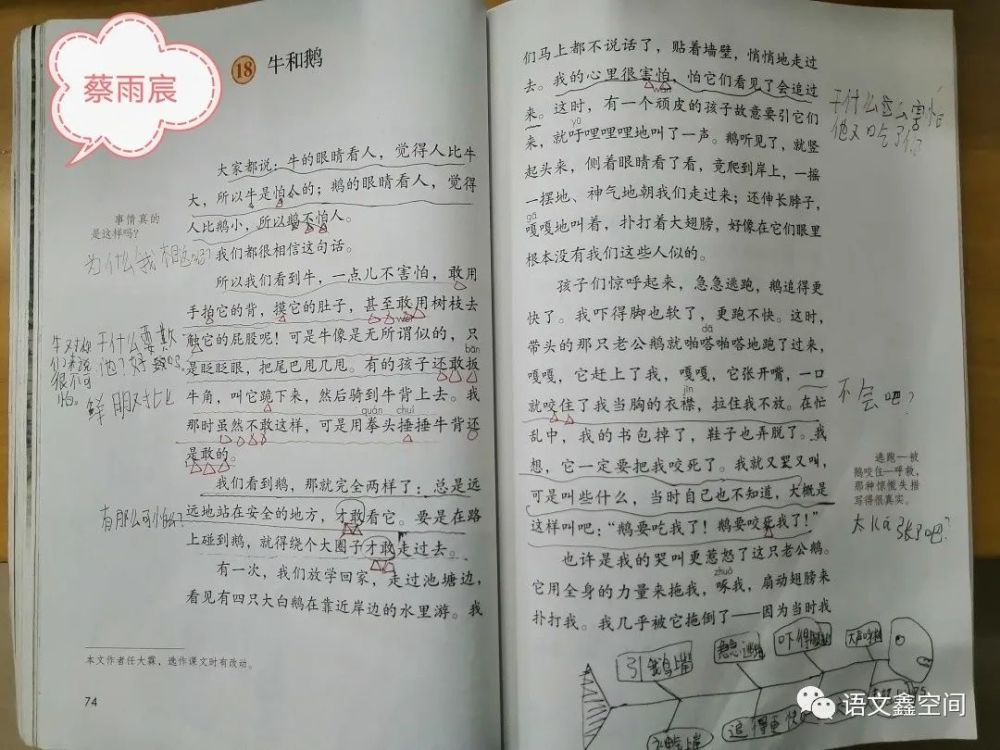 蔡雨宸
18 牛和鹅
大家都说：牛的眼睛看人，觉得人比牛
大，所以牛是怕人的；鹅的眼睛看人，觉得
人比鹅小，所以鹅不怕人。
事情真的
是这样吗？
我们都很相信这句话。
为什么我相信呢？
所以我们看到牛，一点儿不害怕，敢用
手拍它的背，摸它的肚子，甚至敢用树枝去
触它的屁股呢！可是牛像是无所谓似的，只
是眨眨眼，把尾巴甩几甩。有的孩子还敢扳
bān
牛角，叫它跪下来，然后骑到牛背上去。我
quán chuí
那时虽然不敢这样，可是用拳头捶捶牛背还
是敢的。
干什么要欺
鲜明对比
我们看到鹅，那就完全两样了：总是远
远地站在安全的地方，才敢看它。要是在路
上碰到鹅，就得绕个大圈子才敢走过去。
有那么可怕么？
有一次，我们放学回家，走过池塘边，
看见有四只大白鹅在靠近岸边的水里游。我
本文作者任大霖，选作课文时有改动。
74
们马上都不说话了，贴着墙壁，悄悄地走过
去。我的心里很害怕，怕它们看见了会追过
来。这时，有一个顽皮的孩子故意要引它们
yū
来，就吁哩哩哩地叫了一声。鹅听见了，就竖
起头来，侧着眼睛看了看，竟爬到岸上，一摇
一摆地、神气地朝我们走过来；还伸长脖子，
gā
嘎嘎地叫着，扑打着大翅膀，好像在它们眼里
根本没有我们这些人似的。
干什么这么害怕
他又吃了你？
孩子们惊呼起来，急急逃跑，鹅追得更
快了。我吓得脚也软了，更跑不快。这时，
dā
带头的那只老公鹅就啪嗒啪嗒地跑了过来，
嘎嘎，它赶上了我，嘎嘎，它张开嘴，一口
jīn
就咬住了我当胸的衣襟，拉住我不放。在忙
乱中，我的书包掉了，鞋子也弄脱了。我
想，它一定要把我咬死了。我就又哭又叫，
可是叫些什么，当时自己也不知道，大概是
这样叫吧：“鹅要吃我了！鹅要咬死我了！”
不会吧？
逃跑—被
鹅咬住—呼救，
那种惊慌失措
写得很真实。
也许是我的哭叫更惹怒了这只老公鹅。
zhuó
它用全身的力量来拖我，啄我，扇动翅膀来
扑打我。我几乎被它拖倒了——因为当时我
引鹅上岸
急急逃跑
追得更快
语文鑫空间